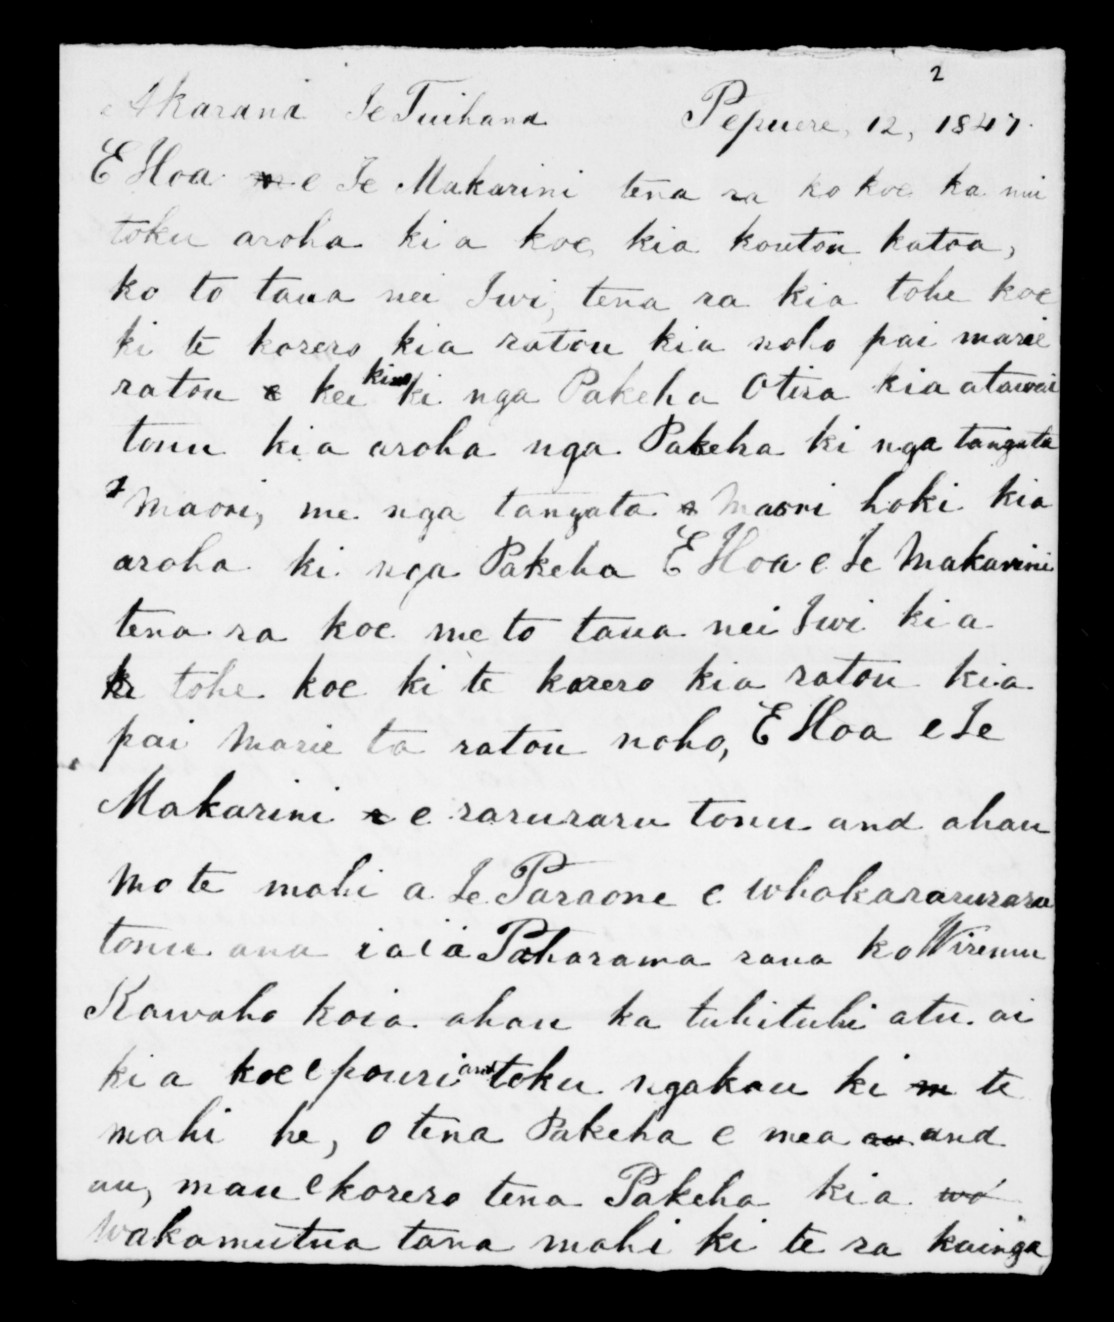 2
Akarana Te Tuihana Pepuere, 12, 1847.
E Hoa e Te Makarini tena ra ko koe ka nui
toku aroha ki a koe, kia koutou katoa,
ko to taua nei Iwi, tena ra kia tohe koe
ki te korero kia ratou kia noho pai marie
ratou kei kino ki nga Pakeha Otira kia atawai
tonu kia aroha nga Pakeha ki nga tangata
Maori, me nga tangata Maori hoki kia
aroha ki nga Pakeha E Hoa e Te Makarini
tena ra koe me to taua nei Iwi kia
tohe koe ki te korero kia ratou kia
pai marie ta ratou noho, E Hoa e Te
Makarini e raruraru tonu ana ahau
mo te mahi a Te Paraone e whakararuraru
tonu ana i a i a Paharama raua ko Wiremu
Kawaho koia ahau ka tuhituhi atu ai
ki a koe e pouri ana toku ngakau ki te
mahi he, o tena Pakeha e mea ana
au, mau e korero tena Pakeha kia
wakamutua tana mahi ki te ra kainga